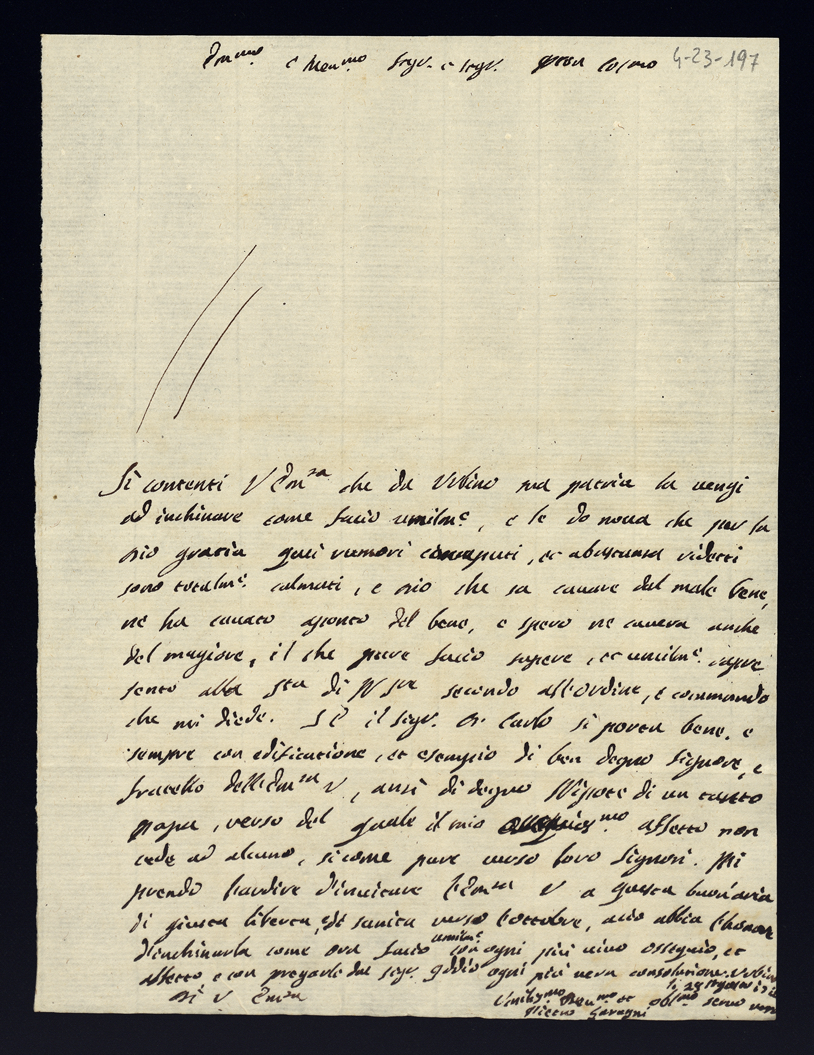 Em.mo e Rev.mo Sig.r e Sig.r pron Col.mo 4-23-197
Si contenti V Em.za che da Urbino sua patria la vengi
ad inchinare come facio umilm.e, e le do nova che per la
Dio gracia quei rumori et abastanza
sono totalm.e calmati, e Dio che sa cavare dal male bene,
ne ha cavato del bene, e spero ne cavera anche
del magiore, il che pure facio sapere, et umilm.e repre
sento alla S.ta di N Sre secondo all'ordine, e commando
che mi diede. Il Sigr. Dn. Carlo si porta bene, e
sempre con edificatione, et esempio di ben degno Signore, e
fratello dell'Em.za V, anzi di degno Nipote di un tanto
papa, verso del quale il mio affetto non
cede ad alcuno, sicome pure verso loro Signori. Mi
prendo l'ardire d'invitare l'Em.za V a questa buon'aria
di giusta liberta, di sanita verso l'ottobre, acio abbia l'honore
d'inchinarla come ora facio umilm.e con ogni più vivo ossequio, et
affetto e con pregarle dal Sigr. Iddio ogni più vera consolazione. Urbino
li 28
Di V Em.za
Umilissmo Dev.mo et obl.mo servo vero